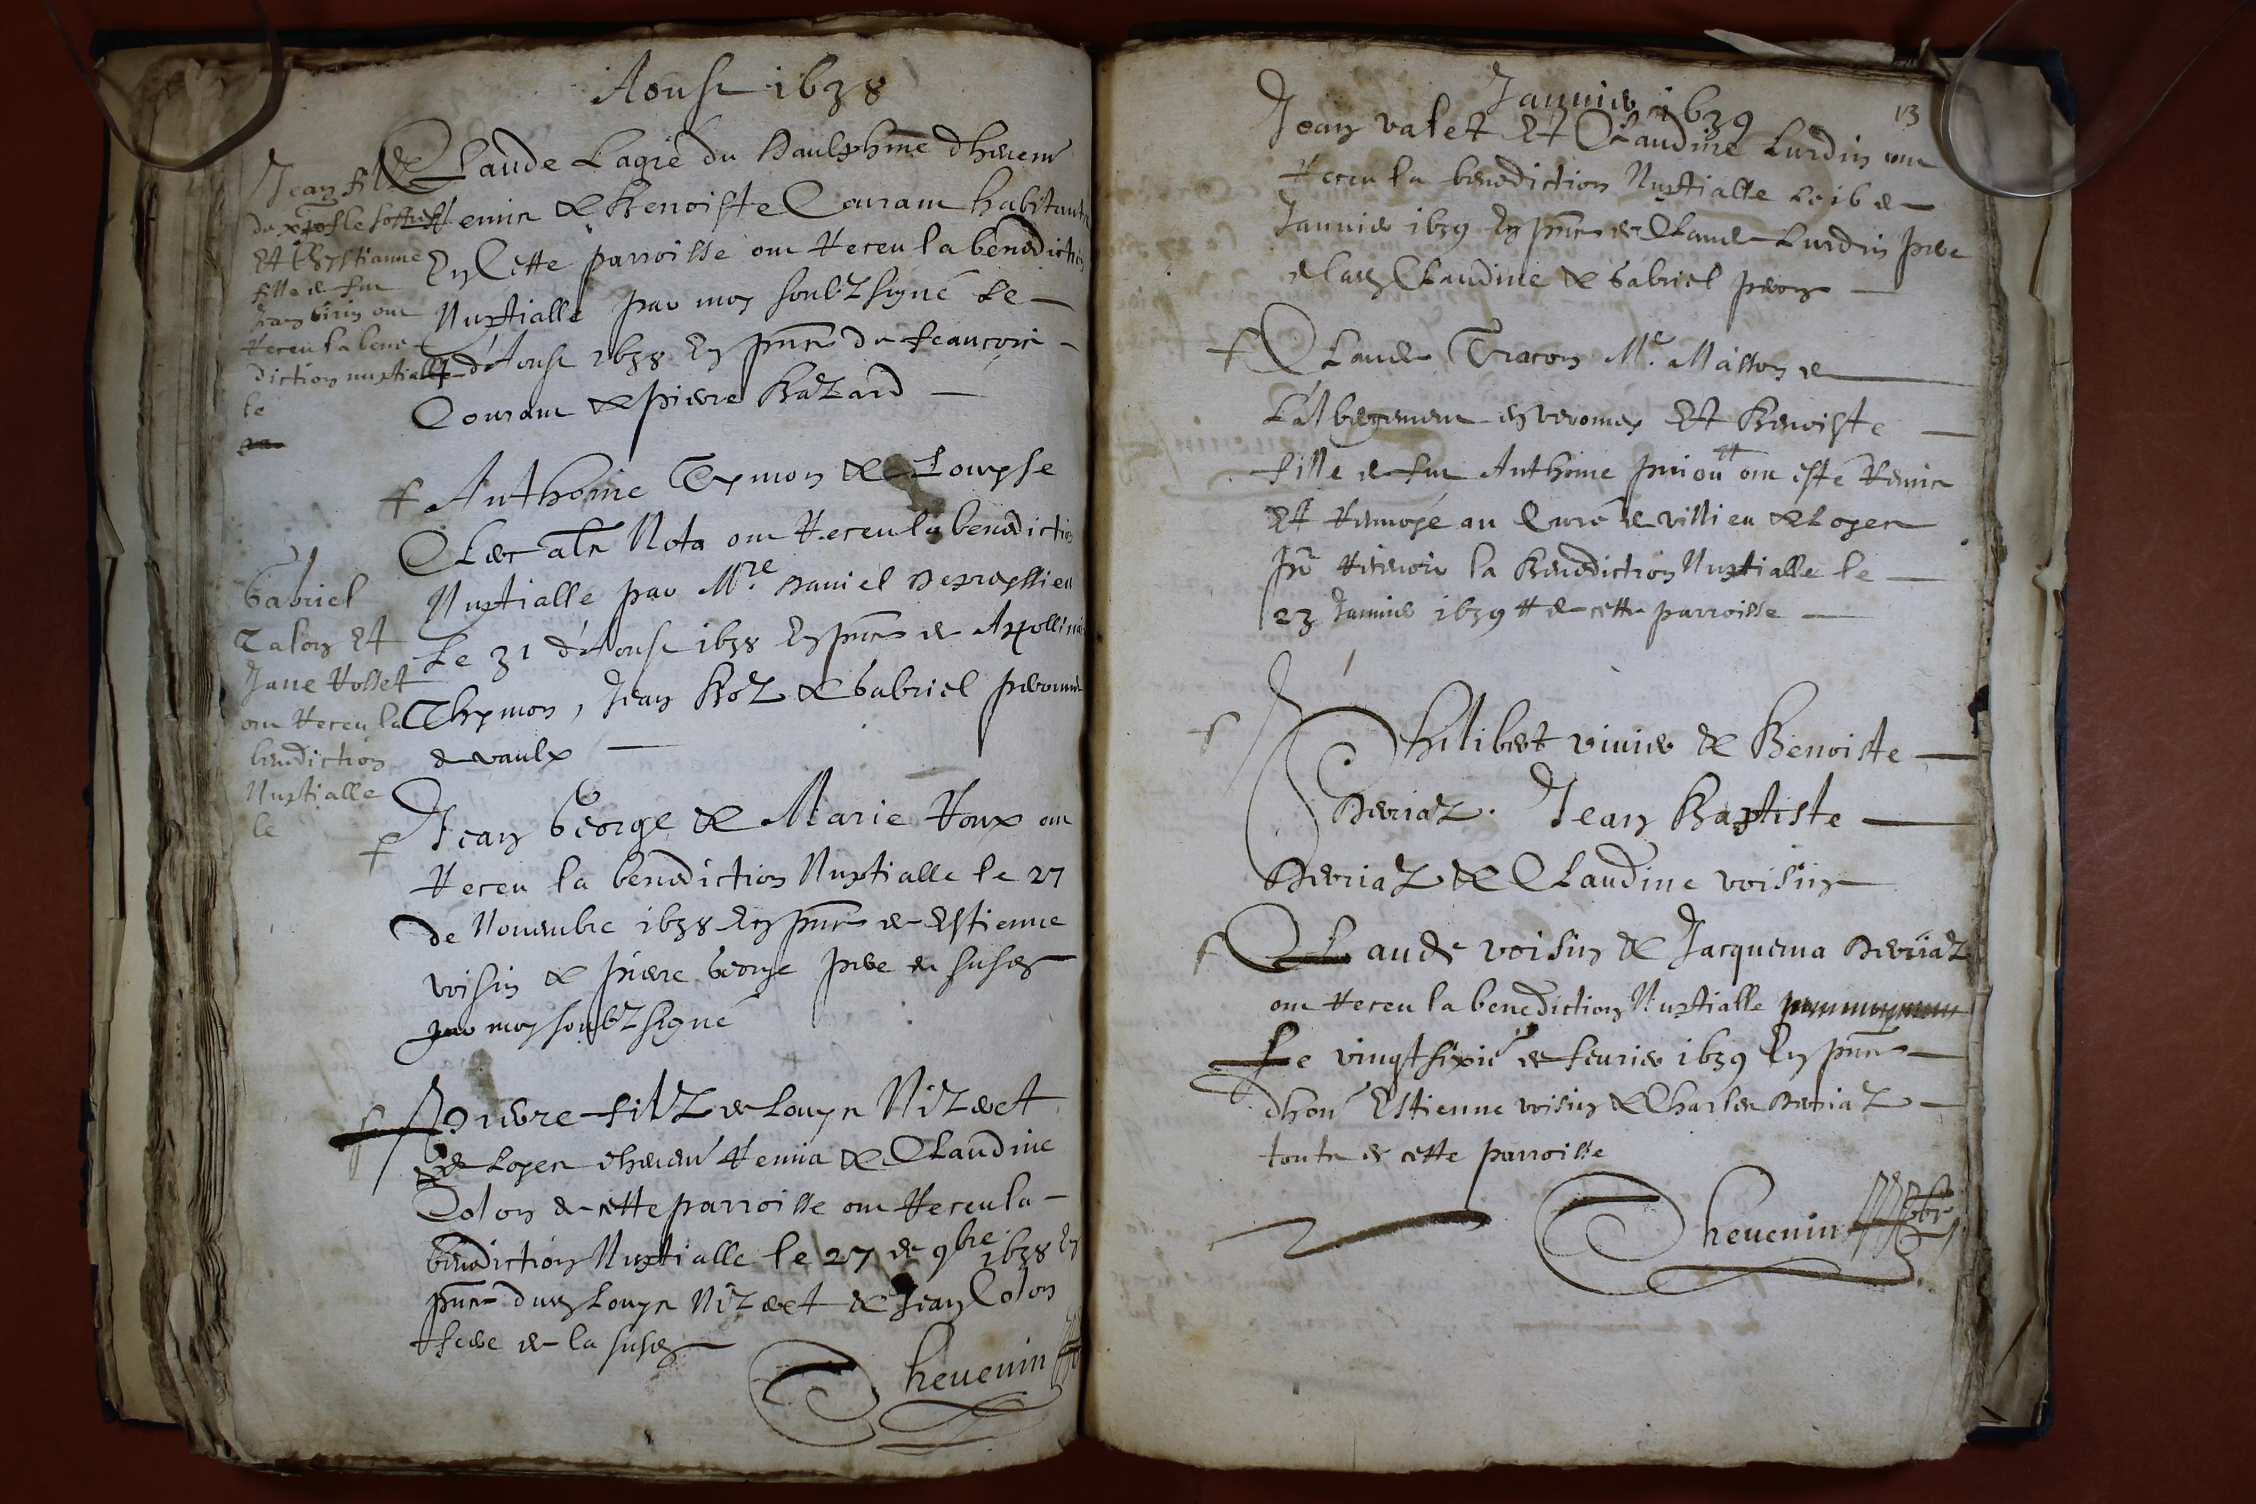 Aoust 1638
Claude Lagie du Daulphiné dheuem
remis & Benoiste Couram habitants
En Cette parroisse ont Receu la benediction
Nuptialle par moy soubzsigné Le
d'Aoust 1638 En pnce de francois
Couram & pierre Bazard
Jean filz
du
Et Estiennne
fille de feu
Jean ont
Receu la bene
diction nuptialle
le
Anthoine Tymon & Louyse
Clerc Nota ont Receu la benediction
Nuptialle par Mre Daniel
Le 31 d'Aoust 1638 En pnce de Apollinar
Thymon, Jean Boz & Gabriel
de vaulx
Gabriel
Talon Et
Jane Rosset
ont Receu la
benediction
Nuptialle
le
Jean George & Marie Roux ont
Receu la benediction Nuptialle le 27
de Nouembre 1638 En pnce de Estienne
voisin & pierre George pere de susdz
par moy soubzsigné
Pierre filz de Louys Nizeret
de Loyes & Claudine
Colon de cette parroisse ont Receu la
benediction Nuptialle le 27 de 9bre 1638 En
pnce dudz Louys Nizeret & Jean Colon
frere de la susdz
Theuenin
13
Januier 1639
Jean valet Et Claudine Lurdin ont
Receu la benediction Nuptialle Le 16 de
Januier 1639 En pnce de Claude Lurdin pere
de ladz Claudine & Gabriel peron
Claude Tracon Me Masson de
L'albergement en veromey Et Benoiste
fille de feu Anthoine ont esté Remis
Et Renuoyé au Curé de villieu & Loyes
pr Receuoir la Benediction Nuptialle le
23 Januier 1639 # de cette parroisse
Philibert viuier & Benoiste
Deriaz. Jean Baptiste
Deriaz & Claudine voisin
Claude voisin & Jacquema Deriaz
ont Receu la benediction Nuptialle
Le vingt sixie de feurier 1639 En pnce
dhon Estienne voisin & Charles Deriaz
touts de cette parroisse
Theuenin pbre